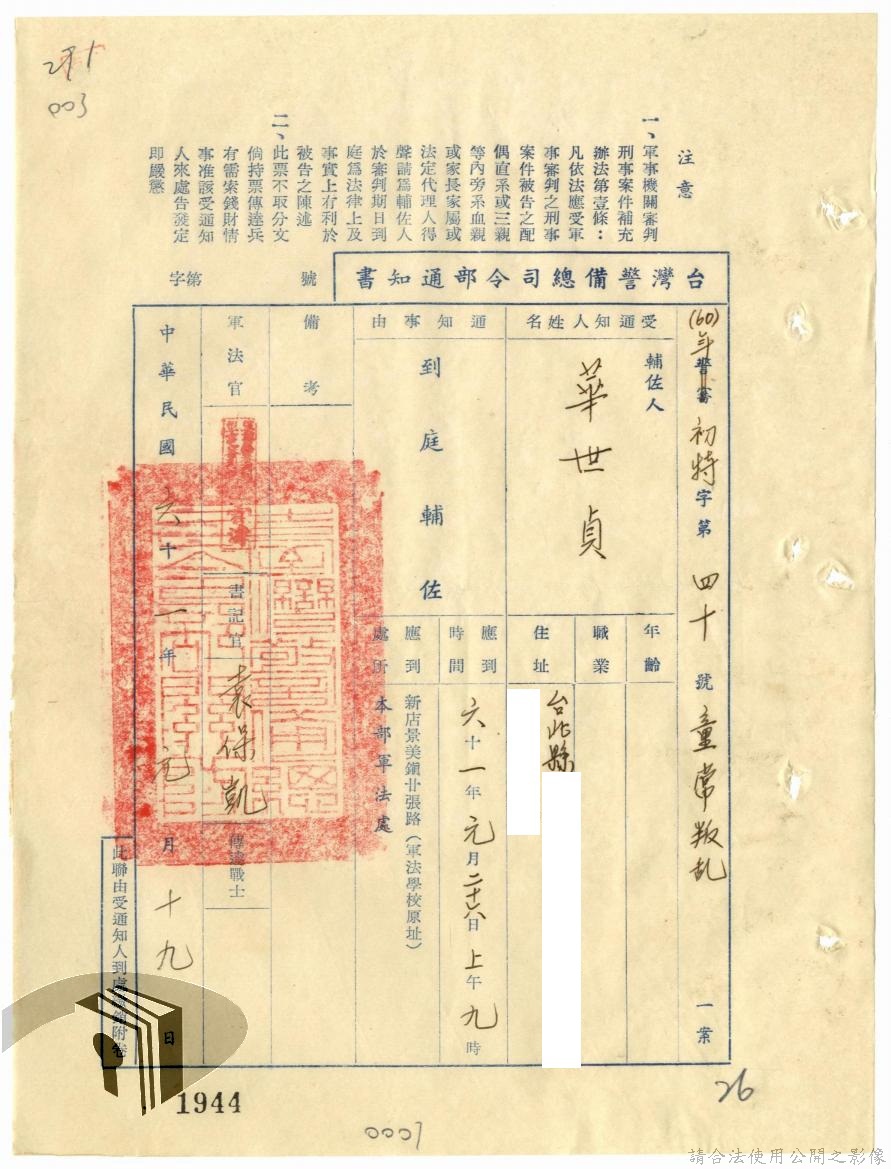 003
注意
一、軍事機關審判
刑事案件補充
辦法第壹條：
凡依法應受軍
事審判之刑事
案件被告之配
偶直系或三親
等內旁系血親
或家長家屬或
法定代理人得
聲請為輔佐人
於審判期日到
庭為法律上及
事實上有利於
被告之陳述
二、此票不取分文
倘持票傳達兵
有需索錢財情
事准該受通知
人來處告發定
即嚴懲
台灣警備總司令部通知書
字第 號
(60)年警審初特字第四十號童常叛乱一案
受通知人姓名
輔佐人
華世貞
年齡
職業
住址
台北縣
通知事由
到庭輔佐
應到時間
六十一年元月二十六日上午九時
應到處所
新店景美鎮廿張路（軍法學校原址）
本部軍法處
備考
軍法官
書記官
袁保凱
傳達戰士
中華民國六十一年元月十九日
此聯由受通知人到處繳銷附卷
1944
0007
26
請合法使用公開之影像